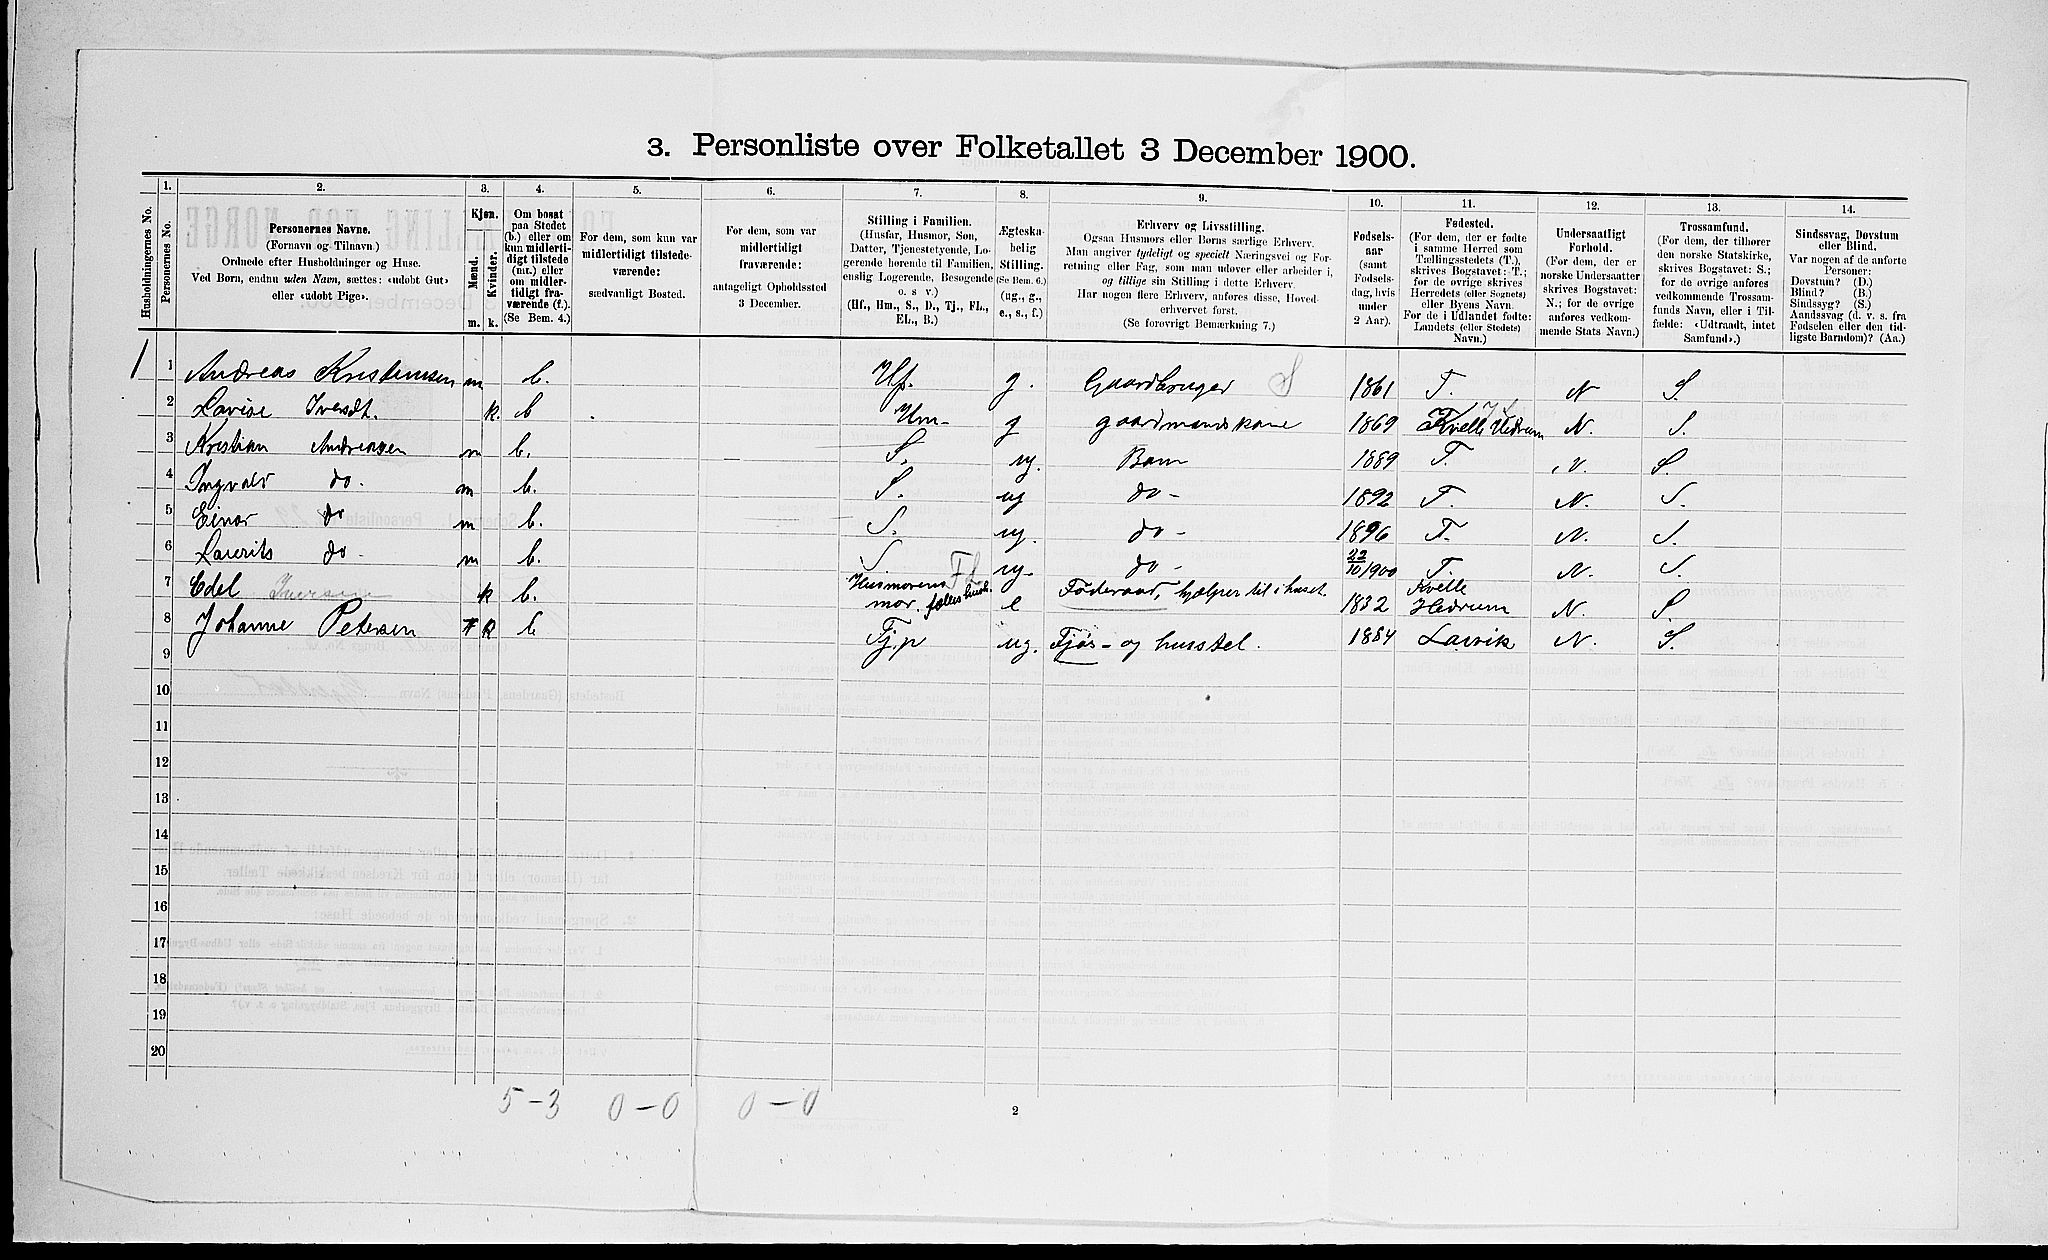 3. Personliste over Folketallet 3 December 1900.
Husholdningernes No.
1.
Personernes No.
2.
Personernes Navne.
(Fornavn og Tilnavn.)
Ordnede efter Husholdninger og Huse.
Ved Børn, endnu uden Navn, sættes: «udøbt Gut»
eller «udøbt Pige».
3.
Kjøn.
Mænd. Kvinder.
m. k.
4.
Om bosat
paa Stedet
(b.) eller om
kun midlerti-
digt tilstede
(mt.) eller
om midler-
tidigt fra-
værende (f.).
(Se Bem. 4.)
5.
For dem, som kun var
midlertidigt tilstede-
værende:
sædvanligt Bosted.
6.
For dem, som var
midlertidigt
fraværende:
antageligt Opholdssted
3 December.
7.
Stilling i Familien.
(Husfar, Husmor, Søn,
Datter, Tjenestetyende, Lo-
gerende hørende til Familien,
enslig Logerende, Besøgende
o. s v.)
(Hf., Hm., S., D., Tj., FL.,
EL., B.)
8.
Ægteska-
belig
Stilling.
(Se Bem. 6.)
(ug., g.,
e., s., f.)
9.
Erhverv og Livsstilling.
Ogsaa Husmors eller Børns særlige Erhverv.
Man angiver tydeligt og specielt Næringsvei og For-
retning eller Fag, som man udøver eller arbeider i,
og tillige sin Stilling i dette Erhverv.
Har nogen flere Erhverv, anføres disse, Hoved-
erhvervet først.
(Se forøvrigt Bemærkning 7.)
10.
Fødsels-
aar
(samt
Fødsels-
dag, hvis
under
2 Aar).
11.
Fødested.
(For dem, der er fødte
i samme Herred som
Tællingsstedets (T.),
skrives Bogstavet: T.;
for de øvrige skrives
Herredets (eller Sognets)
eller Byens Navn.
For de i Udlandet fødte:
Landets (eller Stedets)
Navn.)
12.
Undersaatligt
Forhold.
(For dem, der er
norske Undersaatter
skrives Bogstavet:
N.; for de øvrige
anføres vedkom-
mende Stats Navn.)
13.
Trossamfund.
(For dem, der tilhører
den norske Statskirke,
skrives Bogstavet: S.;
for de øvrige anføres
vedkommende Trossam-
funds Navn, eller i Til-
fælde: «Udtraadt, intet
Samfund».)
14.
Sindssvag, Døvstum
eller Blind.
Var nogen af de anførte
Personer:
Døvstum? (D.)
Blind? (B.)
Sindssyg? (S.)
Aandssvag (d. v. s. fra
Fødselen eller den tid-
ligste Barndom)? (Aa.)
1 1 Andreas Kristensen m b. Hf. g. Gaardbruger S 1861 T. N S.
2 Lovise Iversdt. k. b Hm g gaardmandskone 1869 Kvelle Hedrum N. S.
3 Kristian Andreasen m b. S. ug. Barn 1889 T. N. S.
4 Ingvald do. m b. S. ug do - 1892 T. N. S.
5 Einar do m b. S. ug. do - 1896 T. N. S.
6 Laurits do. m b. S. ug. do - 22/10 1900 T. N. S.
7 Edel Iversen k b. Husmorens mor. fælles hush. FL e Føderaad, hjelper til i huset. 1832 Kvelle Hedrum N. S.
8 Johanne Petersen k b Tj.p ug. Fjøs- og husstel. 1884 Larvik N. S.
9
10
11
12
13
14
15
16
17
18
19
20
5-3 0-0 0-0
2